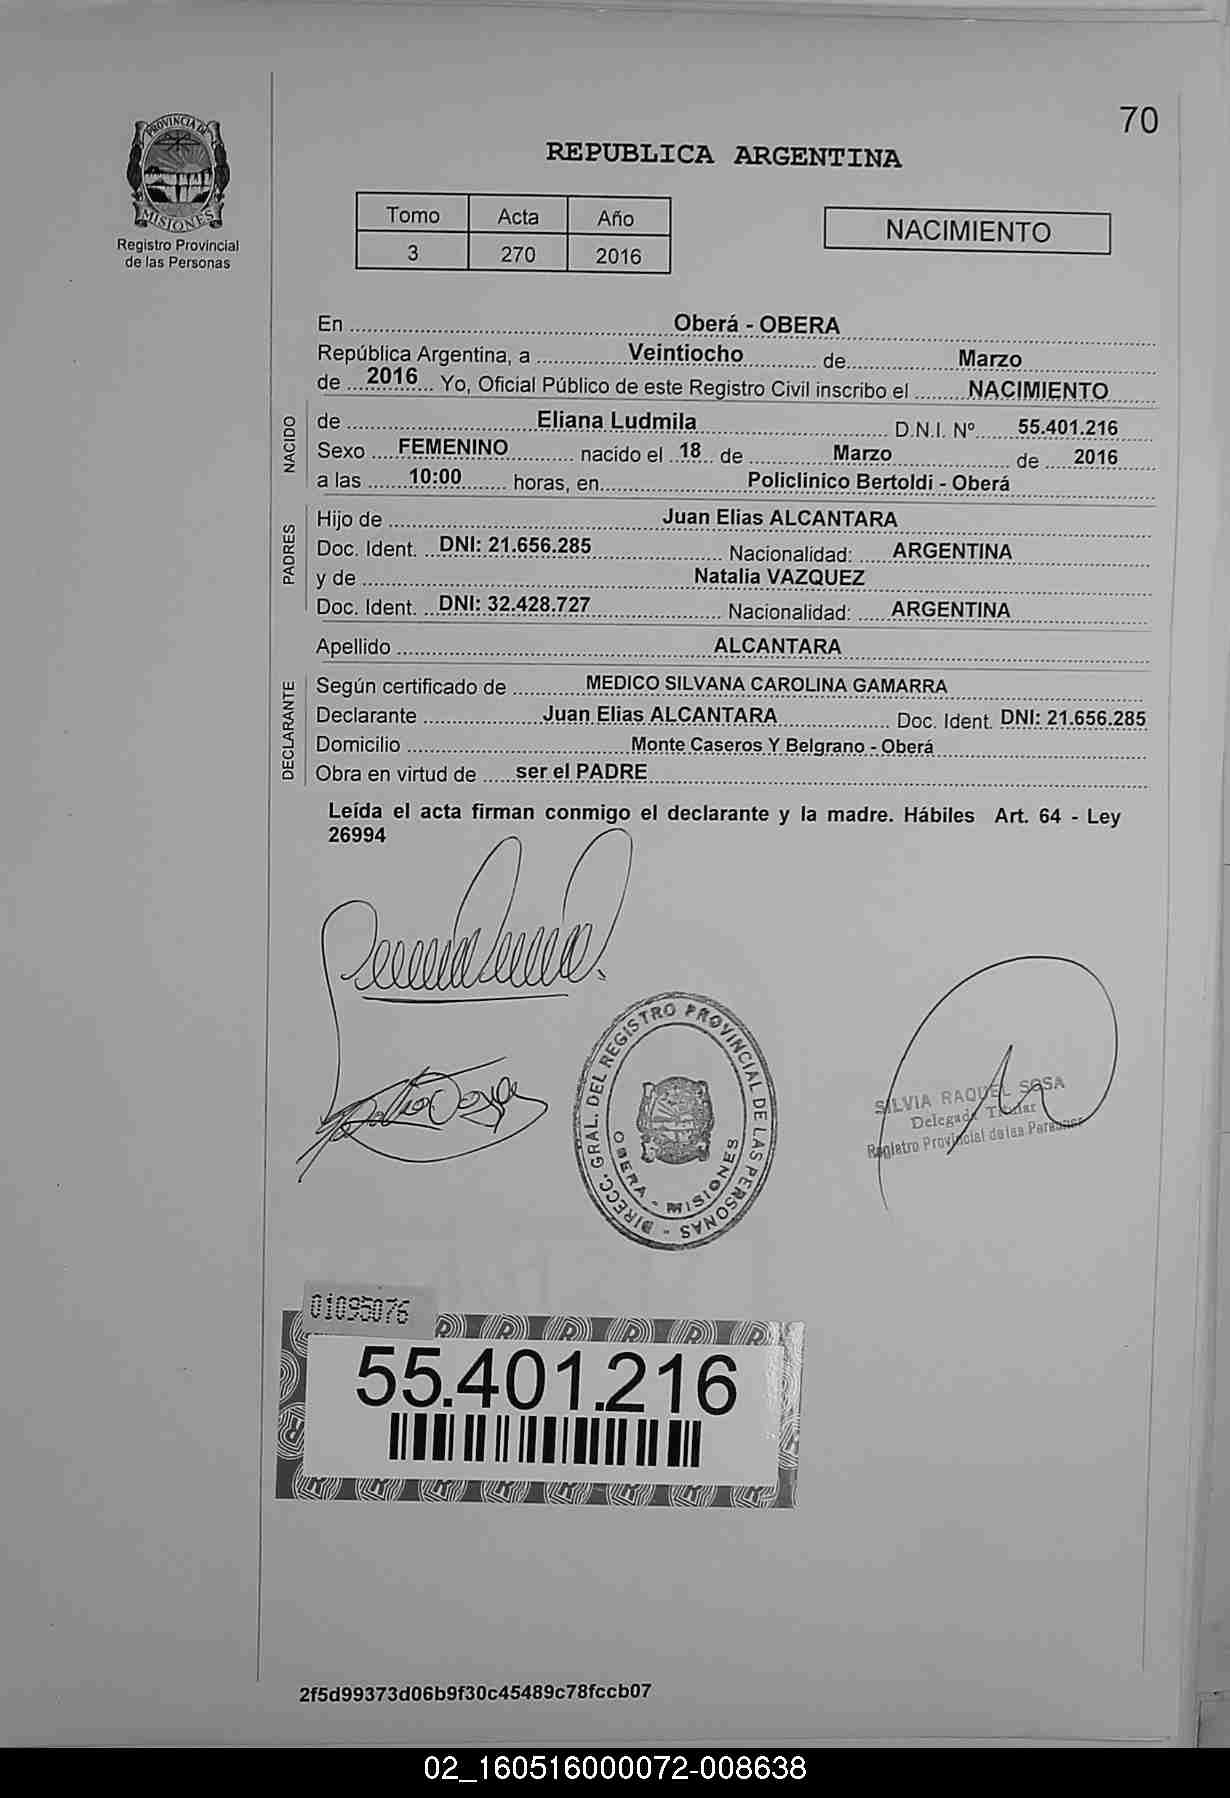 70
PROVINCIA DE
MISIONES
Registro Provincial
de las Personas
REPUBLICA ARGENTINA
Tomo Acta Año
3 270 2016
NACIMIENTO
En Oberá - OBERA
República Argentina, a Veintiocho de Marzo
de 2016 Yo, Oficial Público de este Registro Civil inscribo el NACIMIENTO
NACIDO
de Eliana Ludmila D.N.I. Nº 55.401.216
Sexo FEMENINO nacido el 18 de Marzo de 2016
a las 10:00 horas, en Policlinico Bertoldi - Oberá
PADRES
Hijo de Juan Elias ALCANTARA
Doc. Ident. DNI: 21.656.285 Nacionalidad: ARGENTINA
y de Natalia VAZQUEZ
Doc. Ident. DNI: 32.428.727 Nacionalidad: ARGENTINA
Apellido ALCANTARA
DECLARANTE
Según certificado de MEDICO SILVANA CAROLINA GAMARRA
Declarante Juan Elias ALCANTARA Doc. Ident. DNI: 21.656.285
Domicilio Monte Caseros Y Belgrano - Oberá
Obra en virtud de ser el PADRE
Leída el acta firman conmigo el declarante y la madre. Hábiles Art. 64 - Ley
26994
DIRECC. GRAL. DEL REGISTRO PROVINCIAL DE LAS PERSONAS -
OBERA - MISIONES
SILVIA RAQUEL SOSA
Delegada Titular
Registro Provincial de las Personas
01095076
55.401.216
2f5d99373d06b9f30c45489c78fccb07
02_160516000072-008638